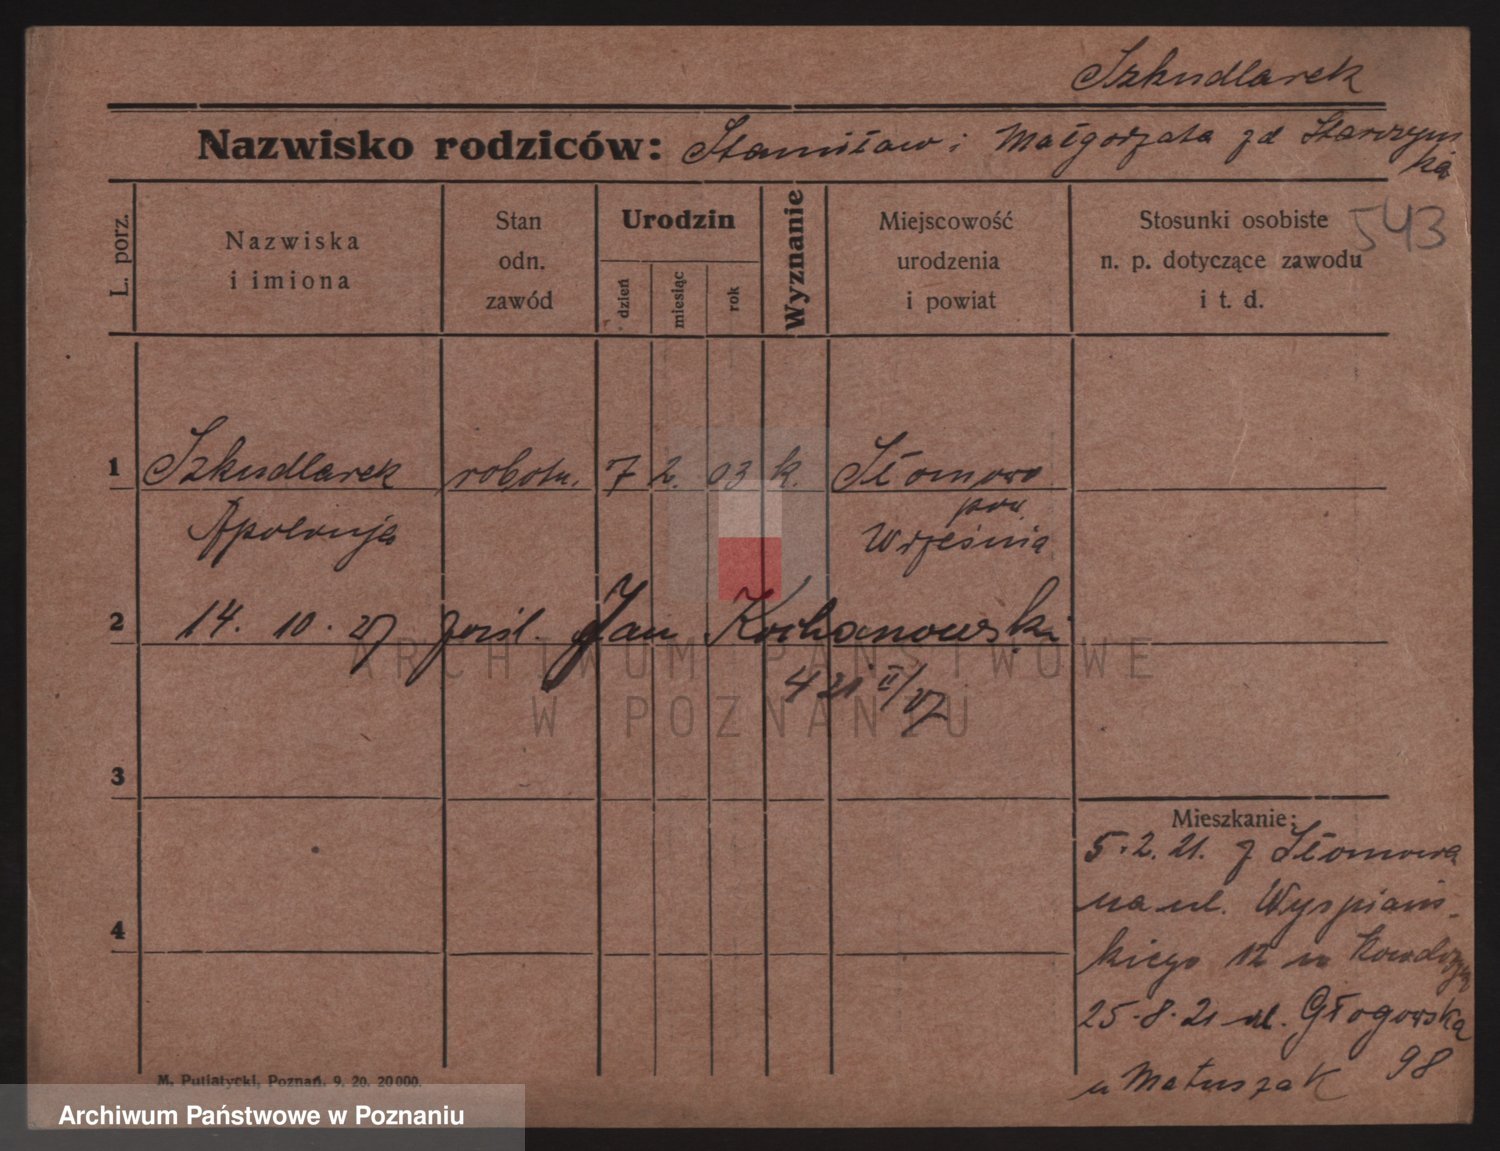 Szkudlarek
Nazwisko rodziców: Stanisław i Małgorzata zd Starczyńs
ka
L. porz.
Nazwiska
i imiona
Stan
odn.
zawód
Urodzin
dzień
miesiąc
rok
Wyznanie
Miejscowość
urodzenia
i powiat
Stosunki osobiste
n. p. dotyczące zawodu
i t. d.
543
1 Szkudlarek robotn. 7 2. 03 k. Słomowo
pow
Apolonja Września
2 14. 10. 27 Jan Kochanowski
4 21 II/27
3
Mieszkanie:
5.2.21. z Słomowa
na ul. Wyspiańs-
4
kiego 12 u
25.8.21 ul. Głogowska
98
u Matuszak
M. Putiatycki, Poznań. 9. 20. 20000.
ARCHIWUM PAŃSTWOWE
W POZNANIU
Archiwum Państwowe w Poznaniu